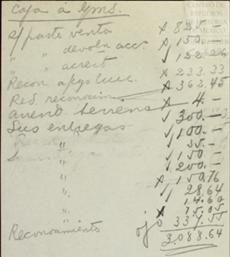 Caja á Gms.
s/ parte venta x 825.—
" " devoln acc. x 150.—
" " acrect √ 152.26
Recon. a pgo luc. x 233.33
Red. reconocim x 362.45
arend terreno x 4.—
Sus entregas √ 300.—
" √ 100.—
35.—
" √ 150.—
" √ 200.—
" x 150.76
" √ 28.64
" √ 14.60
" x 45.05
Reconocimiento ojo 337.55
3,088.64